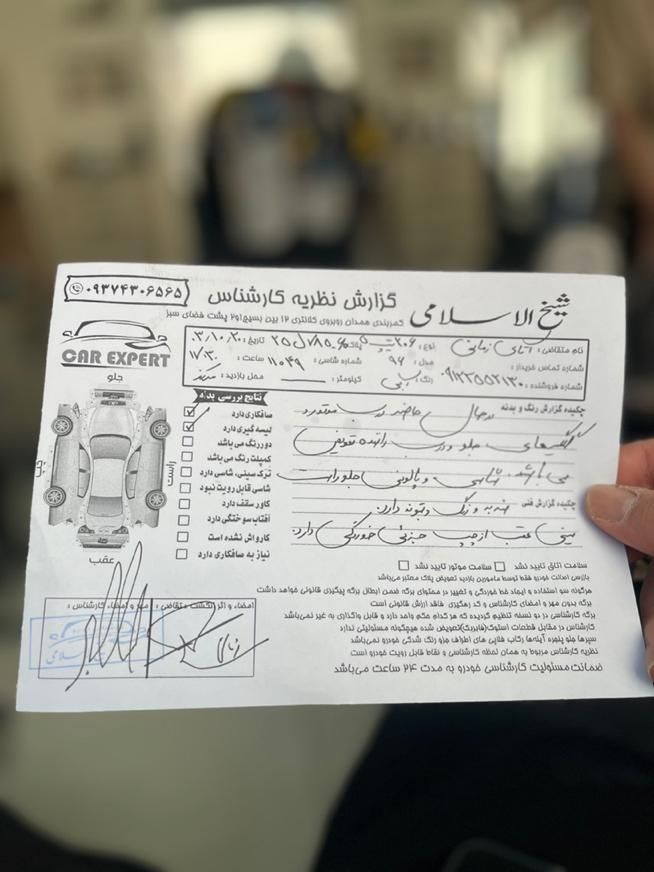 ۰۹۳۷۴۳۰۶۵۶۵
گزارش نظریه کارشناس
شیخ الاسلامی
کمربندی همدان روبروی کلانتری ۱۲ بین بسیج ۱و۲ پشت فضای سبز
CAR EXPERT
نام متقاضی: آقای زمانی نوع: ۲۰۶ پلاک: تاریخ: ۰۳،۱۰،۲۰
شماره تماس خریدار: مدل: ۹۶ شماره شاسی: ۱۱۰۴۹ ساعت: ۱۷/۳۰
شماره فروشنده: رنگ: آبی کیلومتر: محل بازدید:
جلو
چپ
راست
عقب
نتایج بررسی بدنه
صافکاری دارد
لیسه گیری دارد
دور رنگ می باشد
کمپلت رنگ می باشد
ترک سینی، شاسی دارد
شاسی قابل رویت نبود
کاور سقف دارد
آفتاب سوختگی دارد
کارواش نشده است
نیاز به صافکاری دارد
چکیده گزارش رنگ و بدنه درحال حاضر
گلگیرهای جلو و درب راننده تعویض
می باشد. شاسی و پالونی جلو راست
چکیده گزارش فنی ضربه و رنگ و بتونه دارد.
سینی عقب از چپ جزئی خوردگی دارد.
سلامت اتاق تایید نشد سلامت موتور تایید نشد
بازرسی اصالت خودرو فقط توسط مامورین بازدید تعویض پلاک معتبر می باشد
هرگونه سو استفاده و ایجاد خط خوردگی و تغییر در محتوای برگه ضمن ابطال برگه پیگیری قانونی خواهد داشت
برگه بدون مهر و امضای کارشناس و کد رهگیری فاقد ارزش قانونی است
برگه کارشناسی در دو نسخه تنظیم گردیده که هر کدام حکم واحد دارد و قابل واگذاری به غیر نمی باشد
کارشناس در مقابل قطعات استوک(فابریک)تعویض شده هیچگونه مسئولیتی ندارد
سپرها جلو پنجره آینه ها رکاب قلابی های اطراف جزو رنگ شدگی خودرو نمی باشد
نظریه کارشناس مربوط به همان لحظه کارشناسی و نقاط قابل رویت خودرو است
ضمانت مسئولیت کارشناسی خودرو به مدت ۲۴ ساعت می باشد
امضاء و اثر انگشت متقاضی: مهر و امضاء کارشناس: